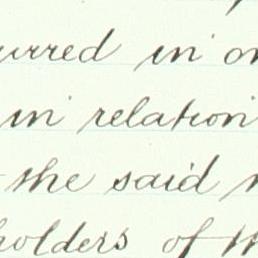 urred in or
in relation
the said
holders of th